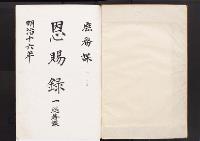 庶務課
恩賜録
明治十六年